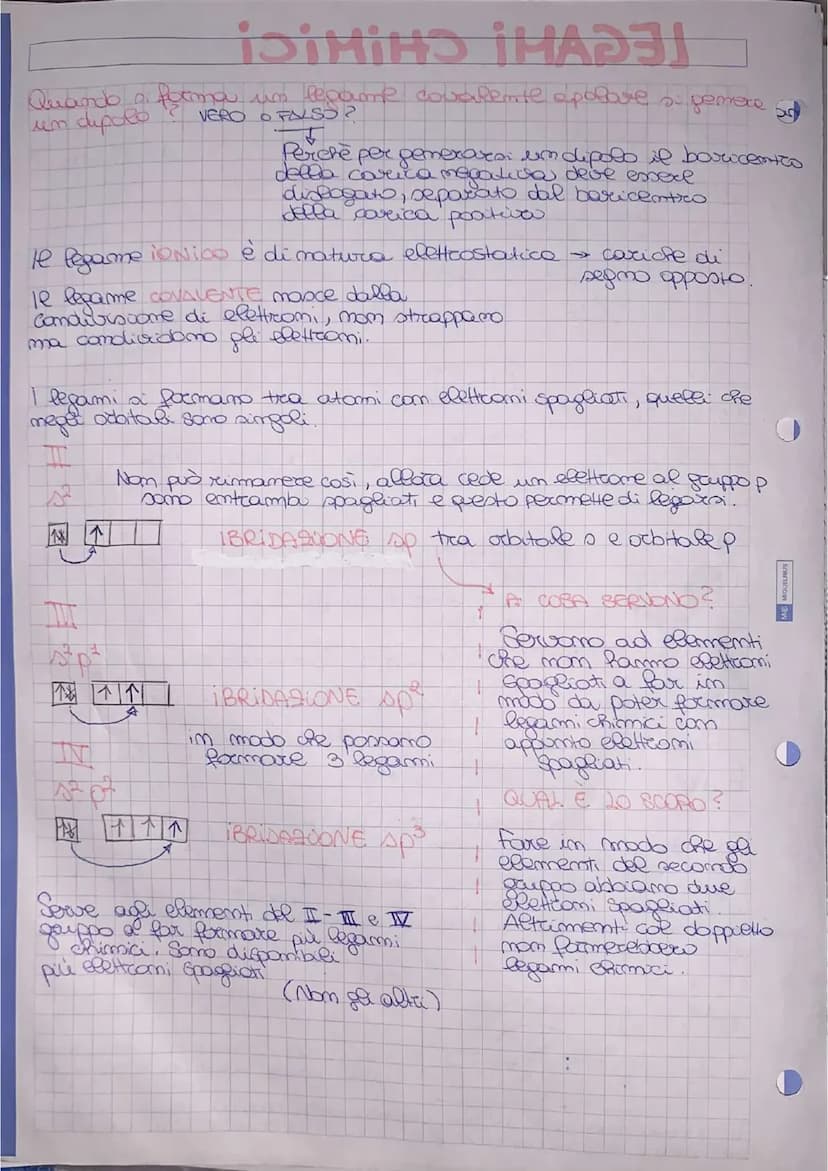 LEGAMI CHIMICI
Quando si forma un legame covalente apolare si genera
un dipolo? VERO O FALSO?
Perchè per generarsi un dipolo il baricentro
della carica negativa deve essere
dislogato, separato dal baricentro
della carica positiva
Il legame IONICO è di natura elettrostatica → cariche di
segno opposto.
Il legame COVALENTE nasce dalla
condivisione di elettroni, non strappano
ma condividono gli elettroni.
I legami si formano tra atomi con elettroni spagliati, quelli che
negli orbitali sono singoli.
II
s²
Non può rimanere così, allora cede un elettrone al gruppo p
sono entrambi spagliati e questo permette di legarsi.
IBRIDAZIONE sp tra orbitale s e orbitale p
III
s²p¹
IBRIDAZIONE sp²
in modo che possano
formare 3 legami
IV
s²p²
IBRIDAZIONE sp³
Serve agli elementi del II-III e IV
gruppo al far formare più legami
chimici. Sono disponibili
più elettroni spagliati
(Non gli altri)
A COSA SERVONO?
Servono ad elementi
che non hanno elettroni
spagliati a far in
modo da poter formare
legami chimici con
appunto elettroni
spagliati.
QUAL È LO SCOPO?
Fare in modo che gli
elementi del secondo
gruppo abbiamo due
elettroni spagliati.
Altrimenti col doppietto
non formerebbero
legami chimici.